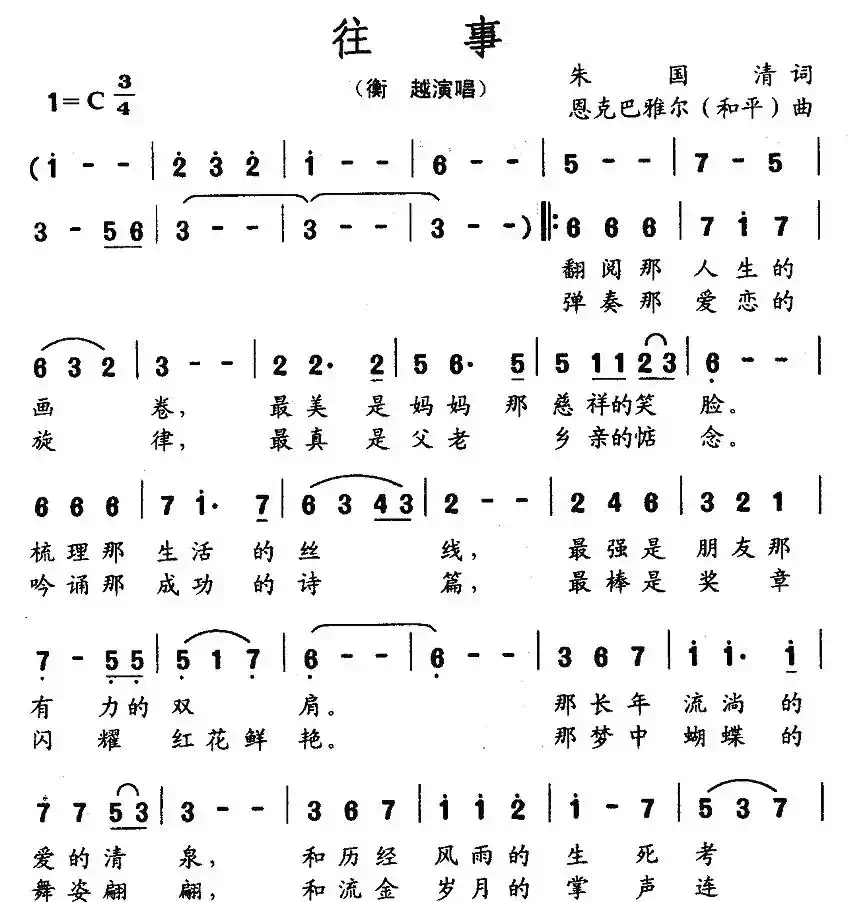 往 事
（衡 越演唱）
朱 国 清 词
恩克巴雅尔（和平）曲
1=C 3/4
(i - - | 2̇ 3̇ 2̇ | i - - | 6 - - | 5 - - | 7 - 5 |
3 - 5 6 | 3 - - | 3 - - | 3 - - ) ‖: 6 6 6 | 7 i 7 |
翻 阅 那 人 生 的
弹 奏 那 爱 恋 的
6 3 2 | 3 - - | 2 2· 2 | 5 6· 5 | 5 1 1 2 3 | 6̣ - - |
画 卷， 最 美 是 妈 妈 那 慈 祥 的 笑 脸。
旋 律， 最 真 是 父 老 乡 亲 的 惦 念。
6 6 6 | 7 i· 7 | 6 3 4 3 | 2 - - | 2 4 6 | 3 2 1 |
梳 理 那 生 活 的 丝 线， 最 强 是 朋 友 那
吟 诵 那 成 功 的 诗 篇， 最 棒 是 奖 章
7̣ - 5̣ 5̣ | 5̣ 1 7̣ | 6̣ - - | 6̣ - - | 3 6 7 | i i· i |
有 力 的 双 肩。 那 长 年 流 淌 的
闪 耀 红 花 鲜 艳。 那 梦 中 蝴 蝶 的
7 7 5 3 | 3 - - | 3 6 7 | i i 2̇ | i - 7 | 5 3 7 |
爱 的 清 泉， 和 历 经 风 雨 的 生 死 考
舞 姿 翩 翩， 和 流 金 岁 月 的 掌 声 连